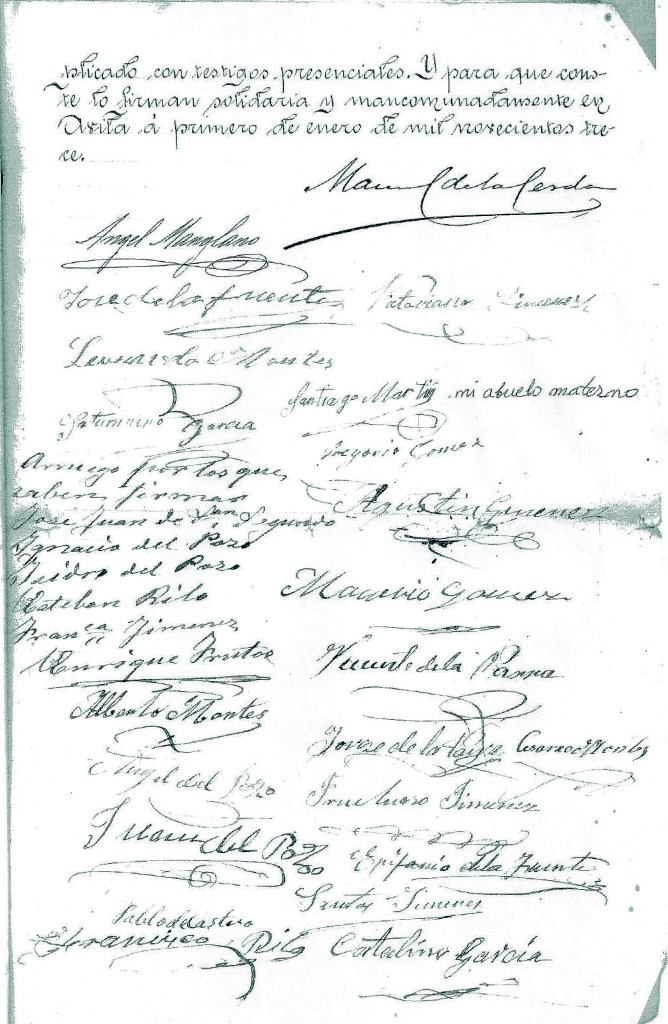 plicado, con testigos presenciales. Y para que cons-
te lo firman solidaria y mancomunadamente en
Avila á primero de enero de mil novecientos tre-
ce.
Manuel de la Cerda
Angel Manglano
Jose de la fuente Victoriano Jimenez
Leonardo Montes
Santiago Martin mi abuelo materno
Saturnino Garcia
Gregorio Gomez
Arruego por los que
saben firmar
Agustin Gimenez
Jose Juan de San Segundo
Ygnacio del Pozo
Isidro del Pozo
Macario Gomez
Esteban Rilo
Franca Jimenez
Enrique Frutos
Vicente de la Parra
Alberto Montes
Jorge de la Cesareo Montes
Angel del Pozo
Fructuoso Jimenez
Juan del Pozo
Epifanio de la Fuente
Santos Jimenez
Pablo
Francisco Rilo Catalino García